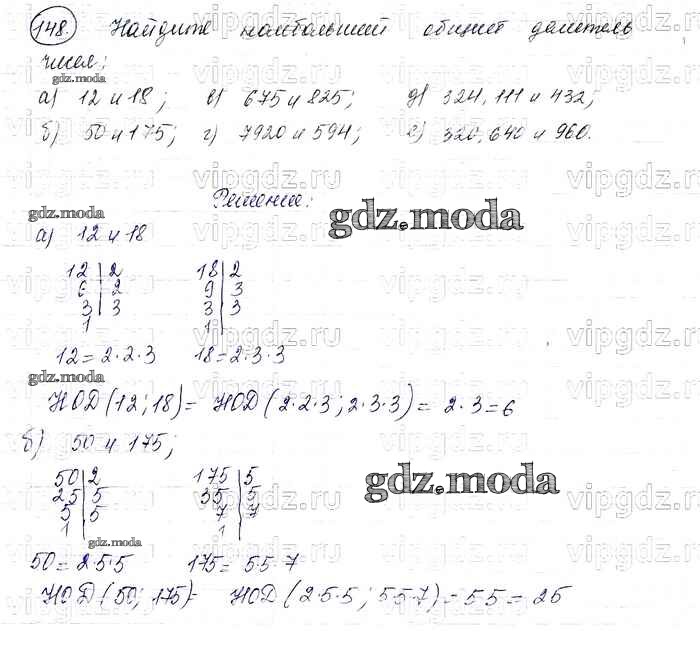 148. Найдите наибольший общий делитель
чисел:
gdz.moda
а) 12 и 18; в) 675 и 825; д) 324, 111 и 432;
б) 50 и 175; г) 7920 и 594; е) 320, 640 и 960.
Решение:
gdz.moda
gdz.moda
а) 12 и 18
12 | 2 18 | 2
6 | 2 9 | 3
3 | 3 3 | 3
1 | 1 |
12 = 2·2·3 18 = 2·3·3
gdz.moda
НОД (12; 18) = НОД (2·2·3; 2·3·3) = 2·3 = 6
б) 50 и 175;
50 | 2 175 | 5
25 | 5 35 | 5
5 | 5 7 | 7
1 | 1 |
gdz.moda
gdz.moda
50 = 2·5·5 175 = 5·5·7
НОД (50; 175) = НОД (2·5·5; 5·5·7) = 5·5 = 25